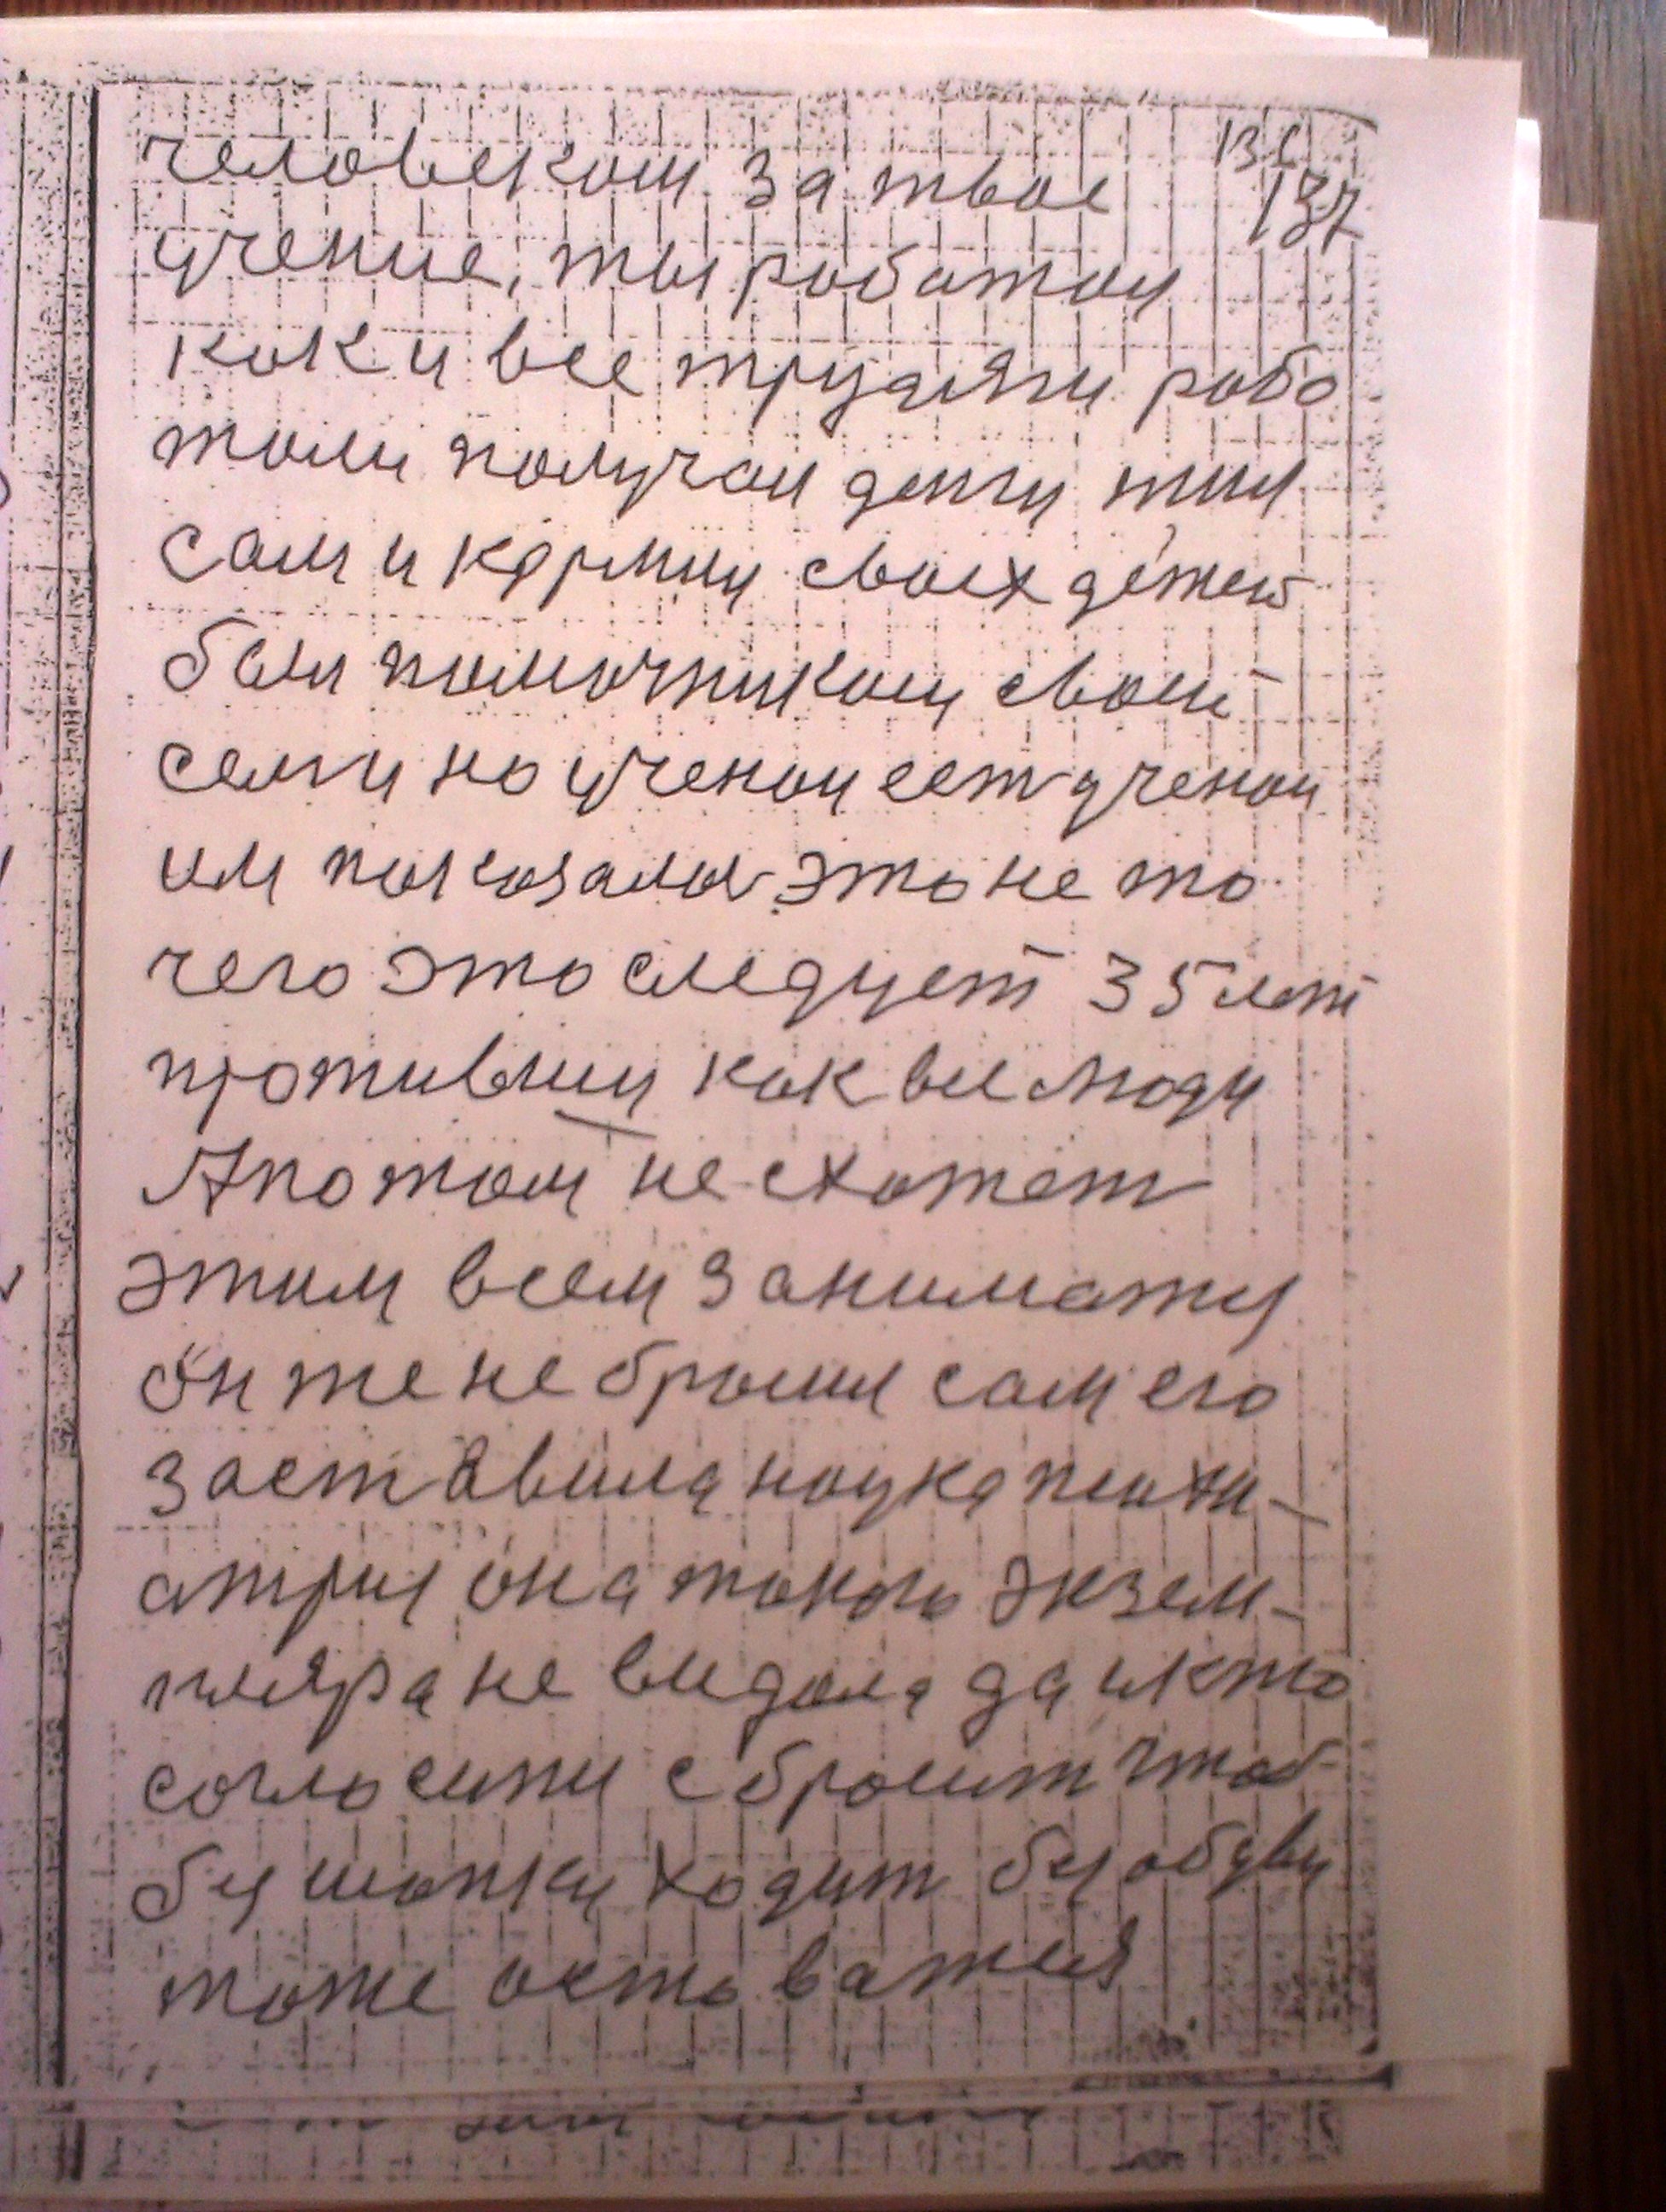 человеком за твое
136
137
учение, ты работал
как и все трудяги рабо
тали получал денги жил
сам и кормил своих детей
был помочником своей
семи но ученои ест ученои
им показалос это не то
чего это следует 35 лет
проживши как все люди
А потом не схотет
этим всем заниматц
он же не бросил сам его
заставила наука психи-
атрия она такого экзем-
пляра не видала да и кто
согласитц сбросит чтоб
бы шапку ходит бы обувы
тоже оставатся